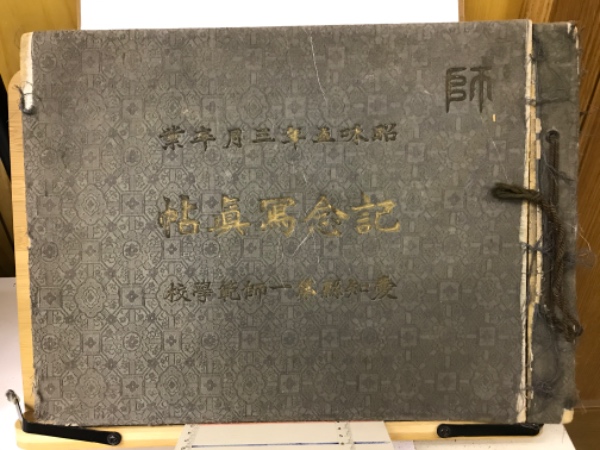 師
昭和五年三月卒業
記念寫眞帖
愛知縣第一師範學校